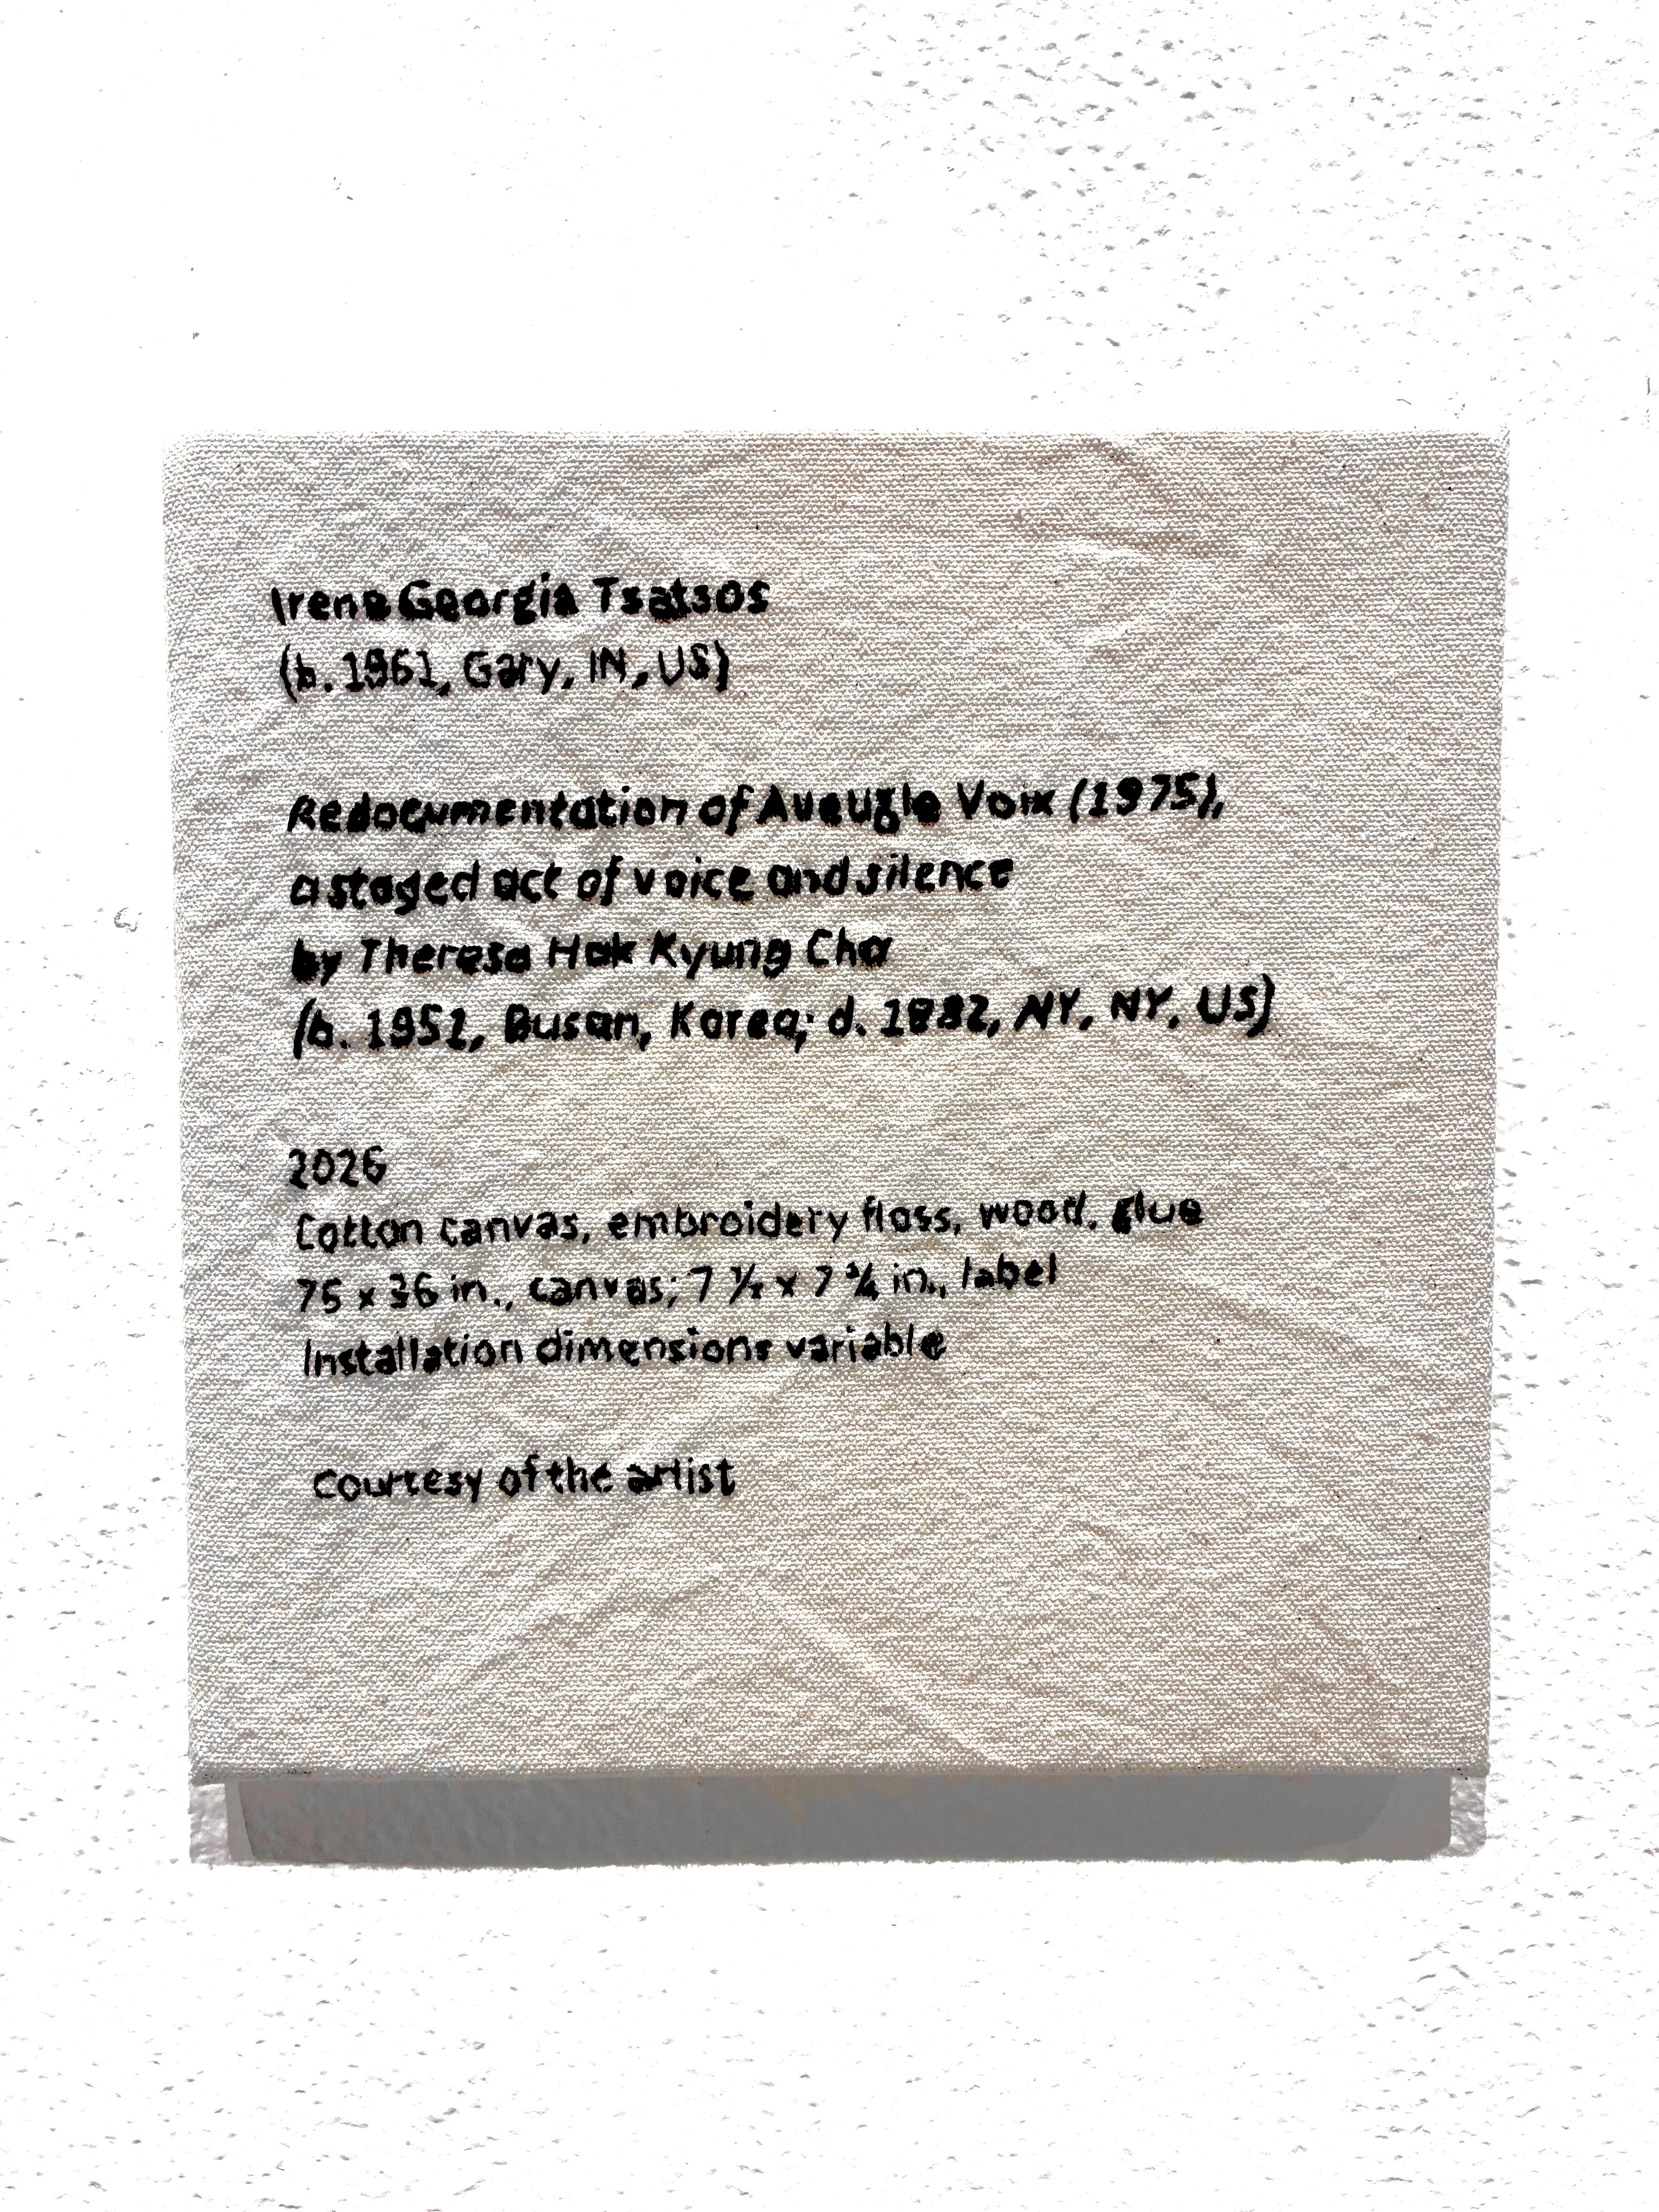 Irene Georgia Tsatsos
(b. 1961, Gary, IN, US)
Redocumentation of Aveugle Voix (1975),
a staged act of voice and silence
by Theresa Hak Kyung Cha
(b. 1951, Busan, Korea; d. 1982, NY, NY, US)
2026
Cotton canvas, embroidery floss, wood, glue
75 x 36 in., canvas; 7 ½ x 7 ¾ in., label
Installation dimensions variable
Courtesy of the artist